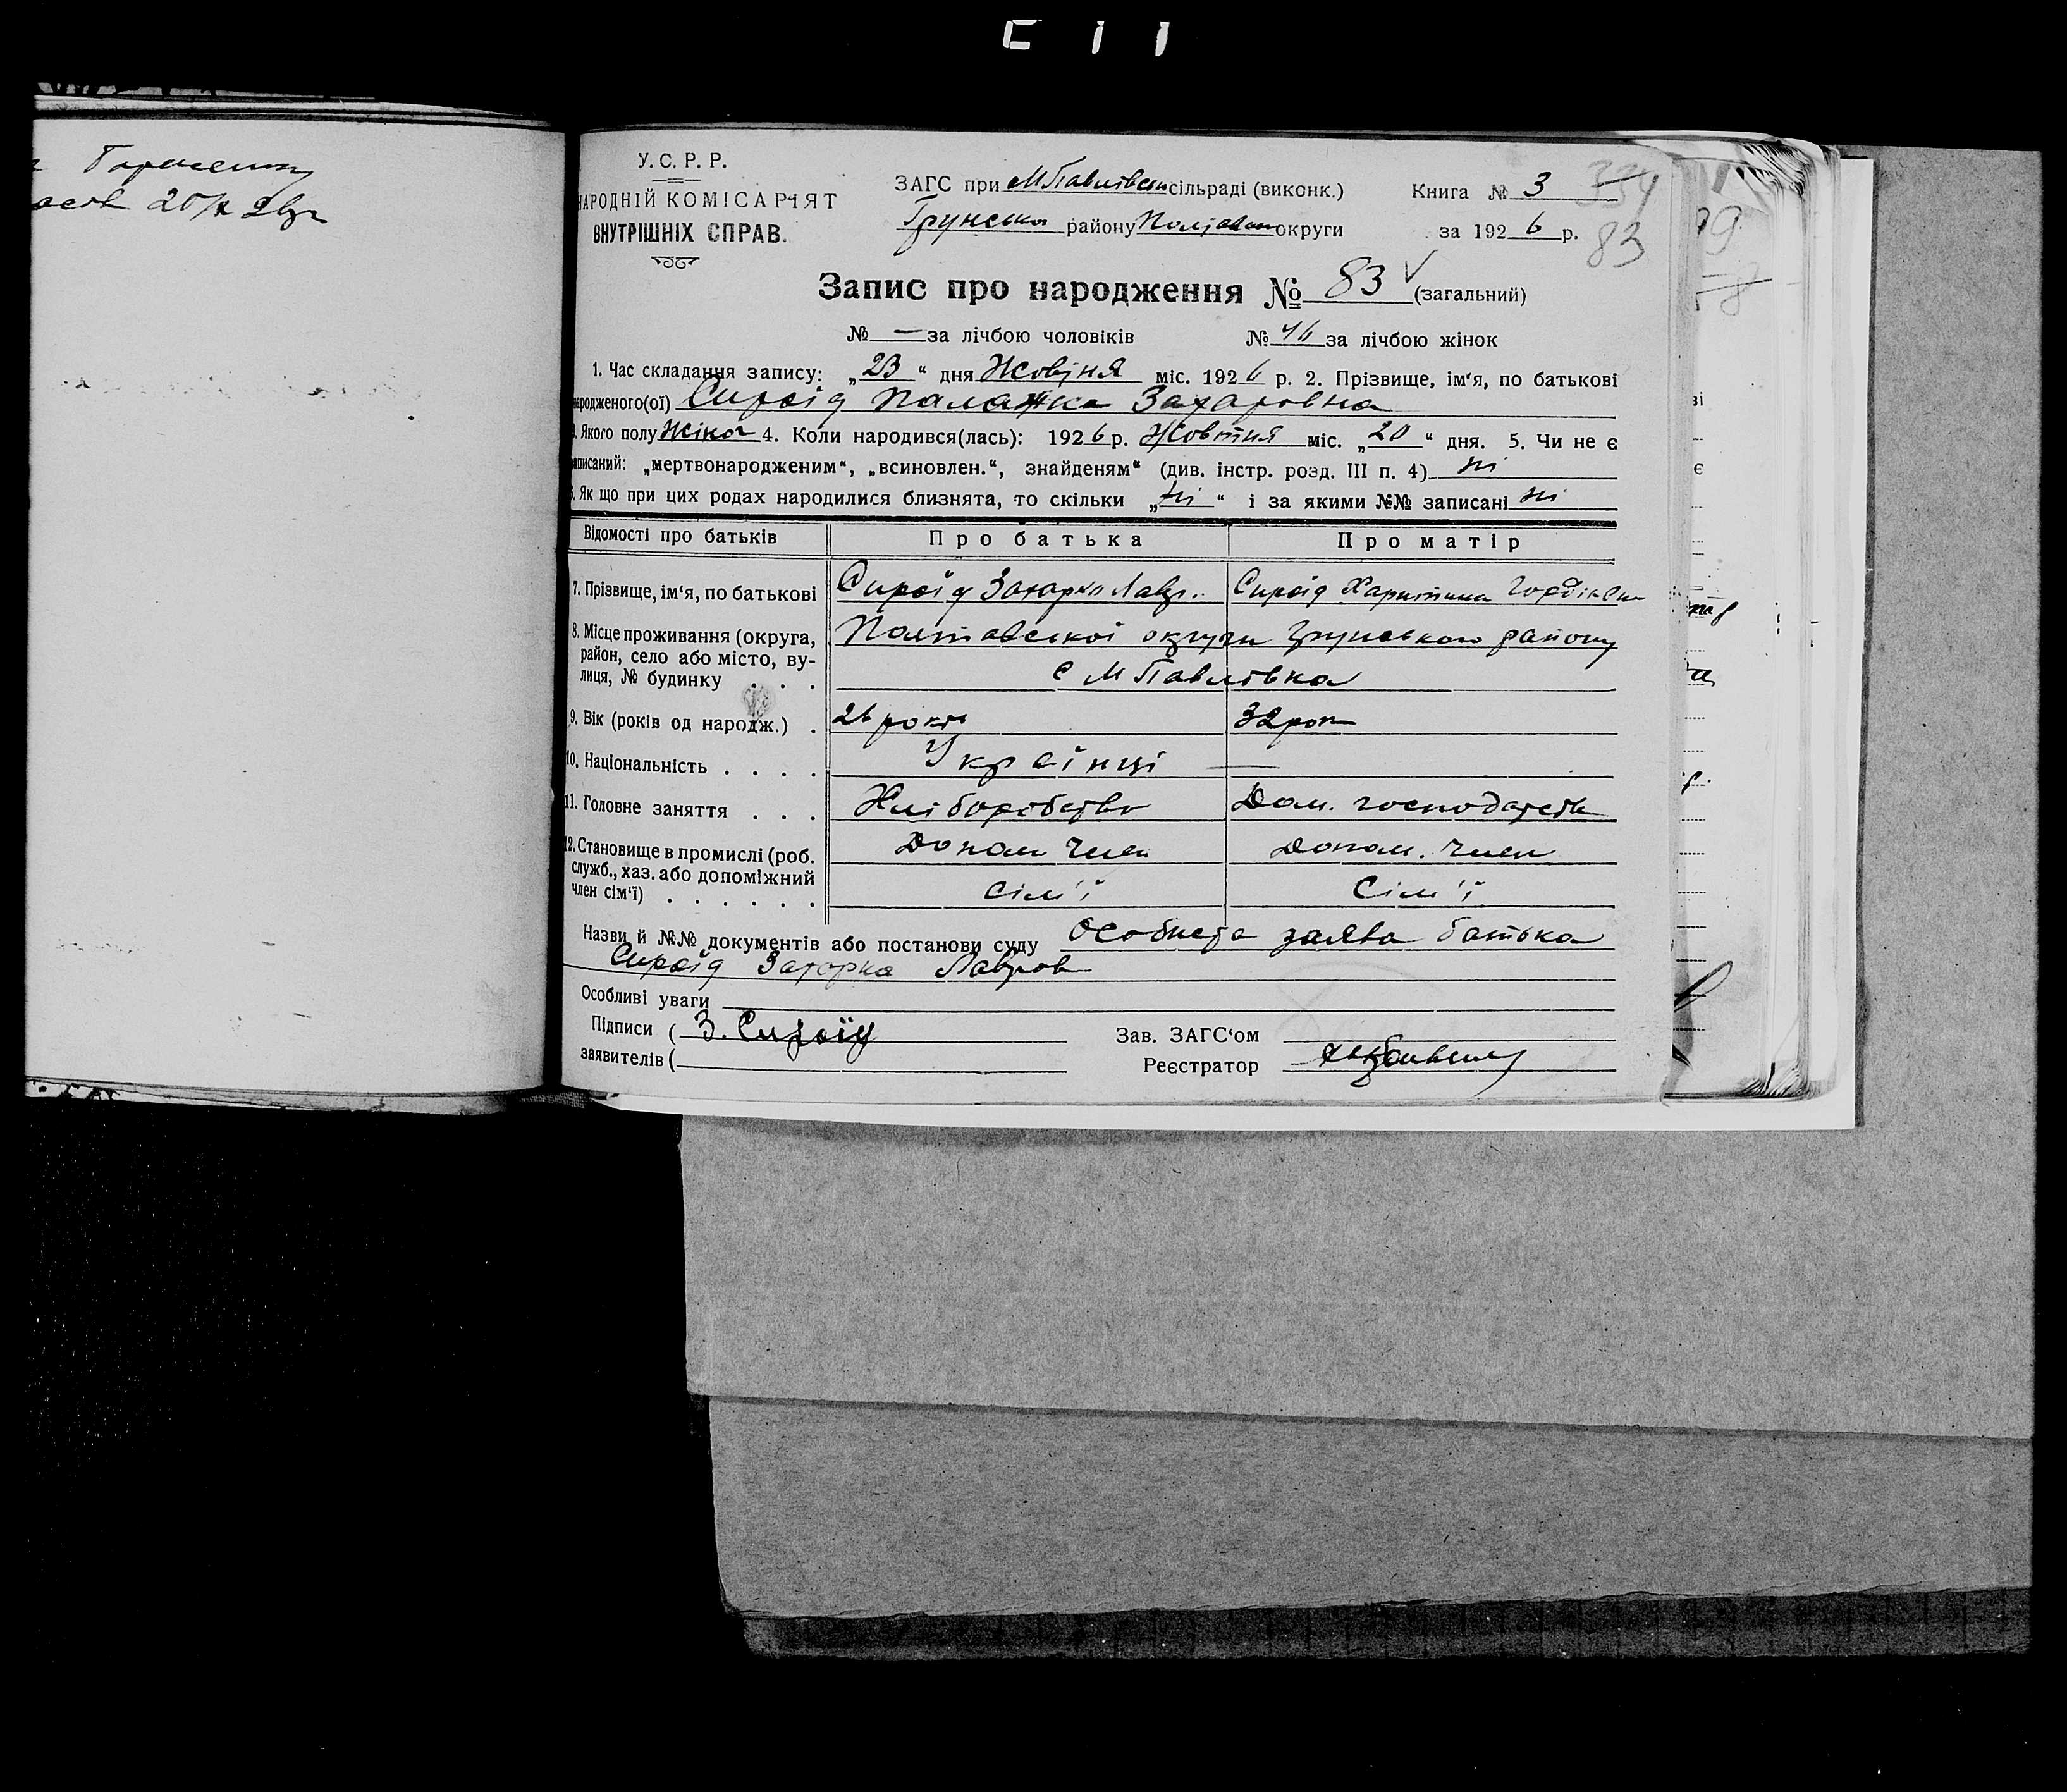 С І І
Горпенту
20/X 26р
У.С.Р.Р.
НАРОДНІЙ КОМІСАРІЯТ
ВНУТРІШНІХ СПРАВ.
ЗАГС при М Павлівськ сільраді (виконк.)
Грунська району Полтавськ округи
Книга № 3
за 1926 р.
83
Запис про народження № 83 (загальний)
№ — за лічбою чоловіків № 46 за лічбою жінок
1. Час складання запису: „23“ дня Жовтня міс. 1926 р. 2. Прізвище, ім‘я, по батькові
народженого(ої) Сироїд Палажка Захаровна
3. Якого полу Жіноч 4. Коли народився(лась): 1926 р. Жовтня міс. „20“ дня. 5. Чи не є
записаний: „мертвонародженим“, „всиновлен.“, знайденям“ (див. інстр. розд. III п. 4) ні
6. Як що при цих родах народилися близнята, то скільки „ні“ і за якими №№ записані ні
Відомості про батьків Про батька Про матір
7. Прізвище, ім‘я, по батькові Сироїд Захарко Лавр. Сироїд Харитина Гордіївна
8. Місце проживання (округа, район, село або місто, вулиця, № будинку . . . Полтавської округи Грунського району
с М Павлівка
9. Вік (років од народж.) . 26 років 32 рок
10. Національність . . . . Українці —
11. Головне заняття . . . Хліборобство Дом. господарств
12. Становище в промислі (роб. служб., хаз. або допоміжний член сім‘ї) . . . . . . Допом член Допом. член
сім'ї сім'ї
Назви й №№ документів або постанови суду Особиста заява батька
Сироїд Захарка Лавров
Особливі уваги
Підписи ( З. Сироїд
заявителів (
Зав. ЗАГС‘ом
Реєстратор